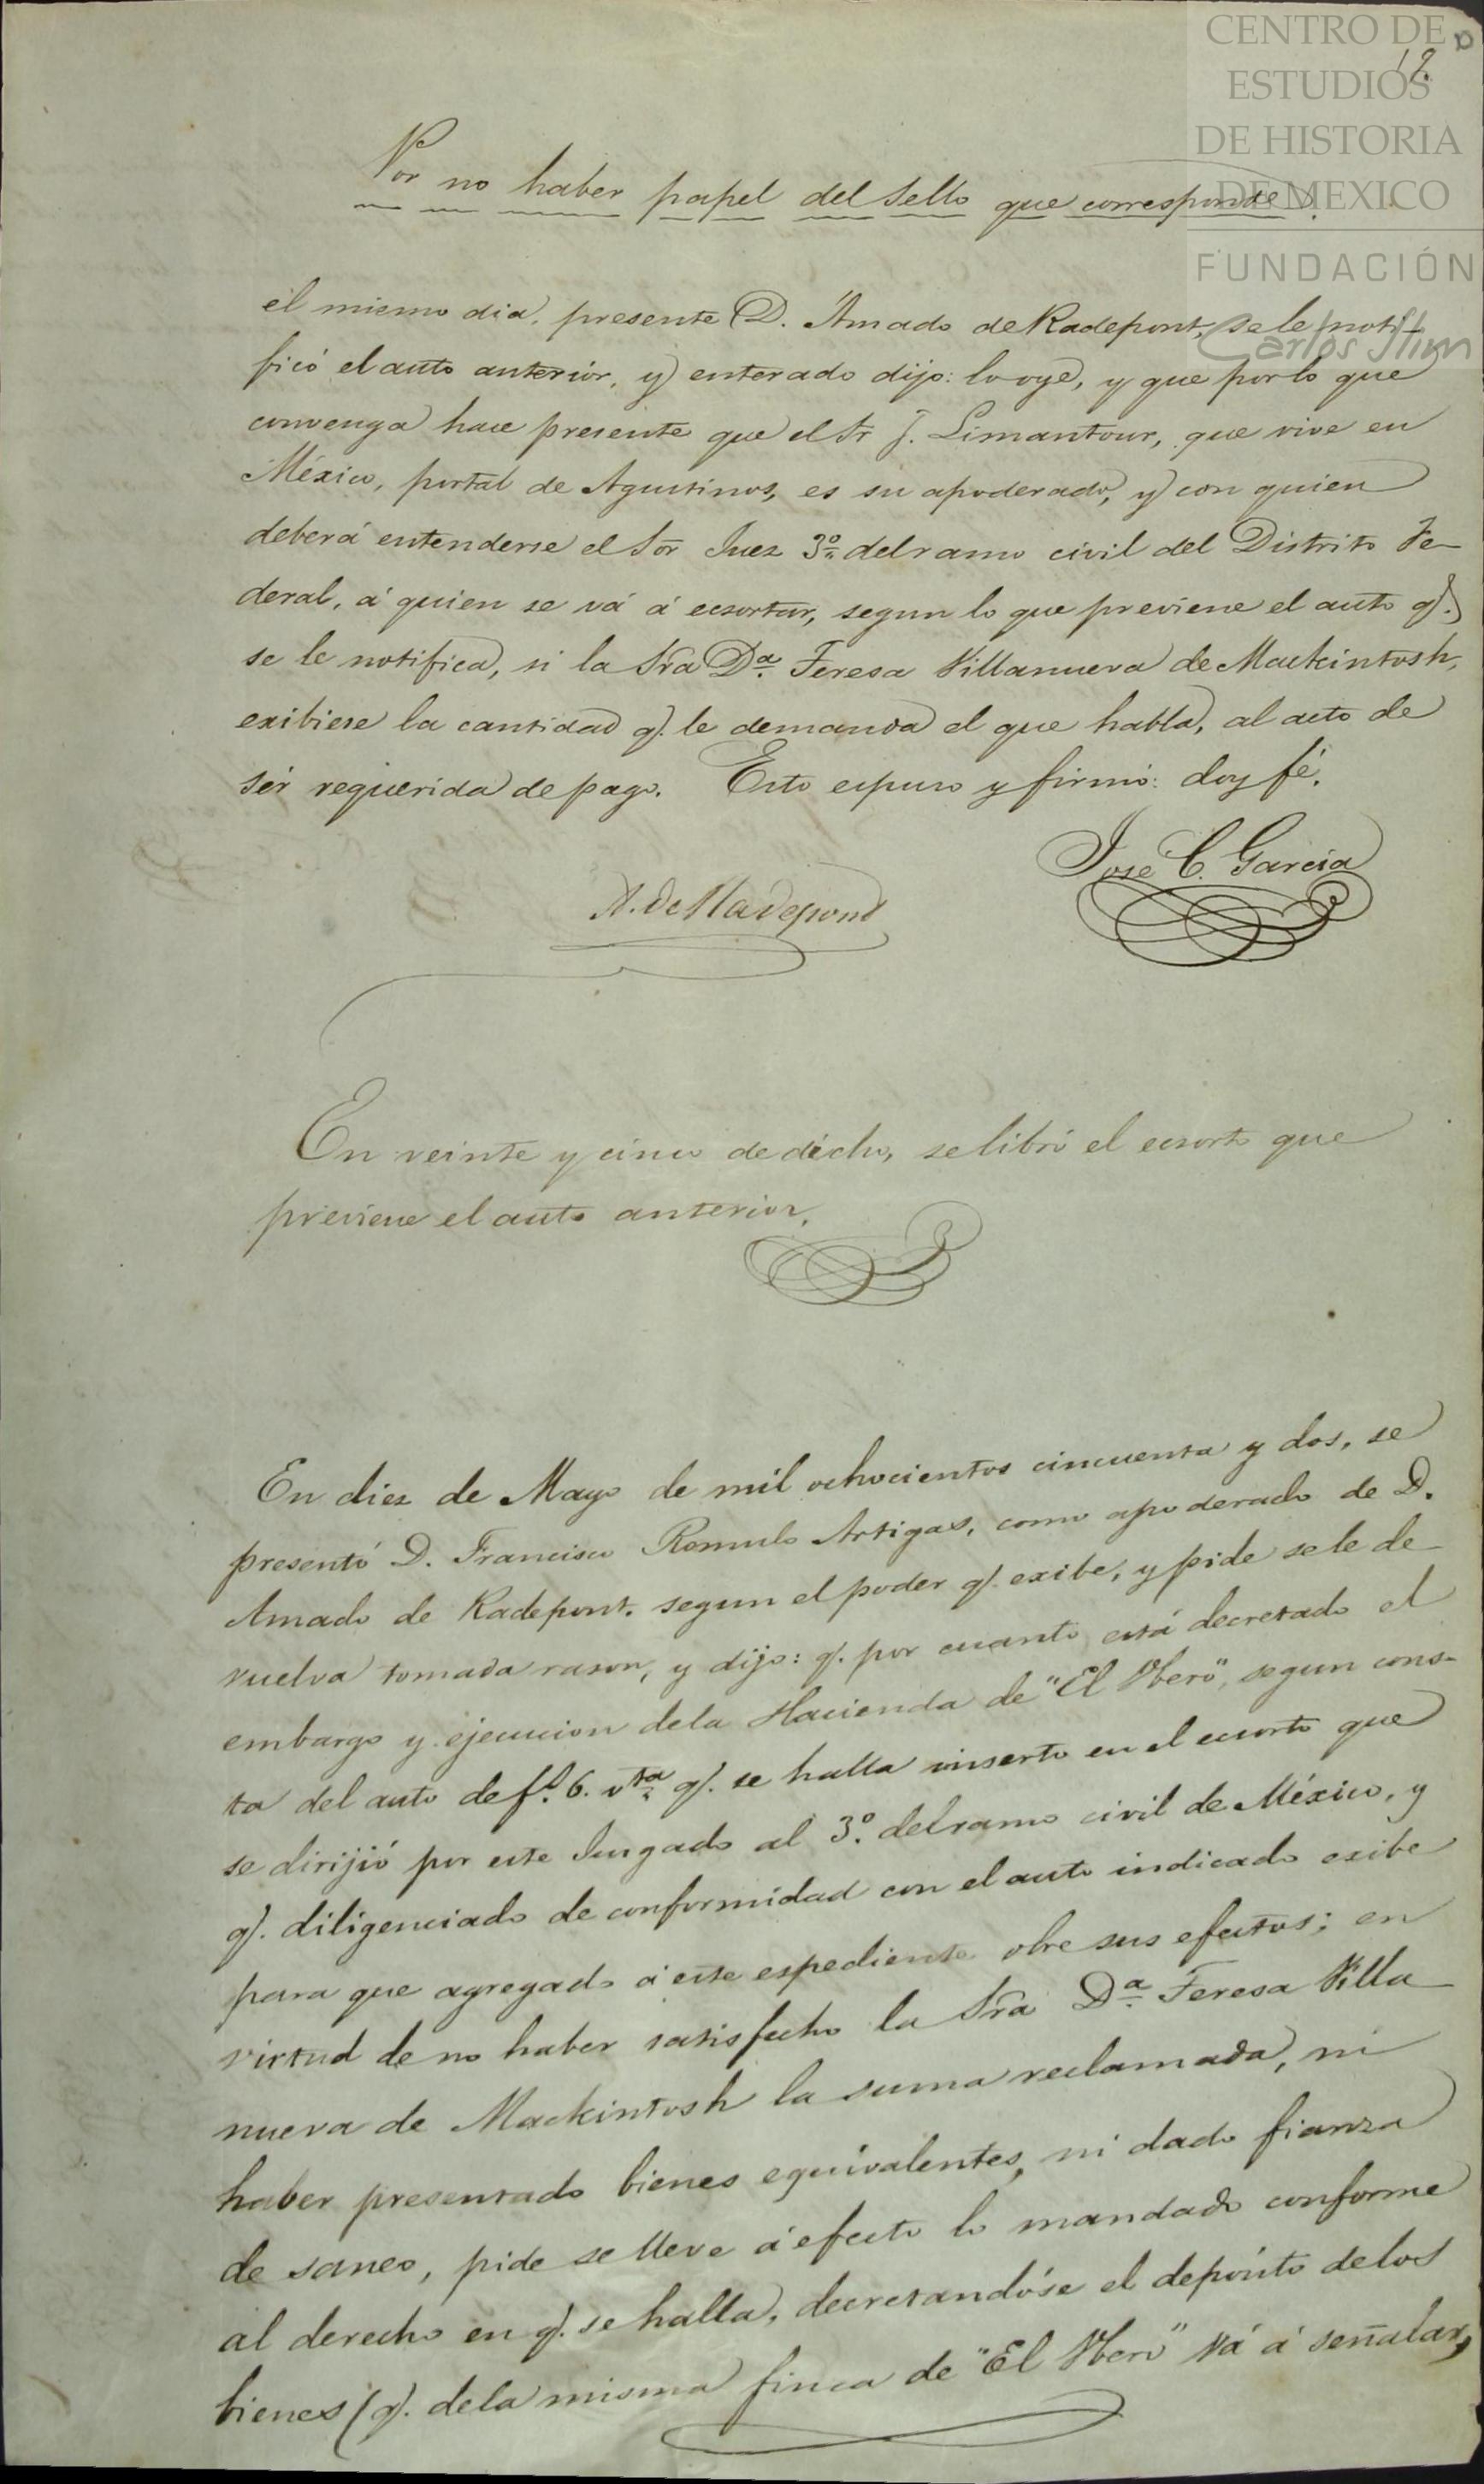 CENTRO DE
ESTUDIOS
DE HISTORIA
DE MEXICO
FUNDACIÓN
Carlos Slim
12.
Por no haber papel del sello que corresponde.
el mismo dia, presente D. Amado de Radepont, se le noti-
ficó el auto anterior, y enterado dijo: lo oye, y que por lo que
convenga hace presente que el Sr J. Limantour, que vive en
México, portal de Agustinos, es su apoderado, y con quien
deberá entenderse el Sor Juez 3º del ramo civil del Distrito Fe-
deral, á quien se vá á ecsortar, segun lo que previene el auto q.
se le notifica, si la Sra Dª Teresa Villanueva de Mackintosh,
exibiese la cantidad q. le demanda el que habla, al acto de
sér requerida de pago. Esto espuso y firmó: doy fé.
José C. Garcia
A. de Radepont
En veinte y cinco de dicho, se libró el ecsorto que
previene el auto anterior.
En diez de Mayo de mil ochocientos cincuenta y dos, se
presentó D. Francisco Romulo Artigas, como apoderado de D.
Amado de Radepont, segun el poder q. exibe, y pide se le de-
vuelva tomada razon, y dijo: q. por cuanto está decretado el
embargo y ejecucion de la Hacienda de "El Obero", segun cons-
ta del auto de f. 6. vta q. se halla inserto en el ecsorto que
se dirijió por este Juzgado al 3º. del ramo civil de México, y
q. diligenciado de conformidad con el auto indicado exibe
para que agregado á este espediente obre sus efectos; en
virtud de no haber satisfecho la Sra Dª Teresa Villa-
nueva de Mackintosh la suma reclamada, ni
haber presentado bienes equivalentes, ni dado fianza
de saneo, pide se lleve á efecto lo mandado conforme
al derecho en q. se halla, decretandóse el depósito de los
bienes (q. de la misma finca de "El Obero" vá á señalar,